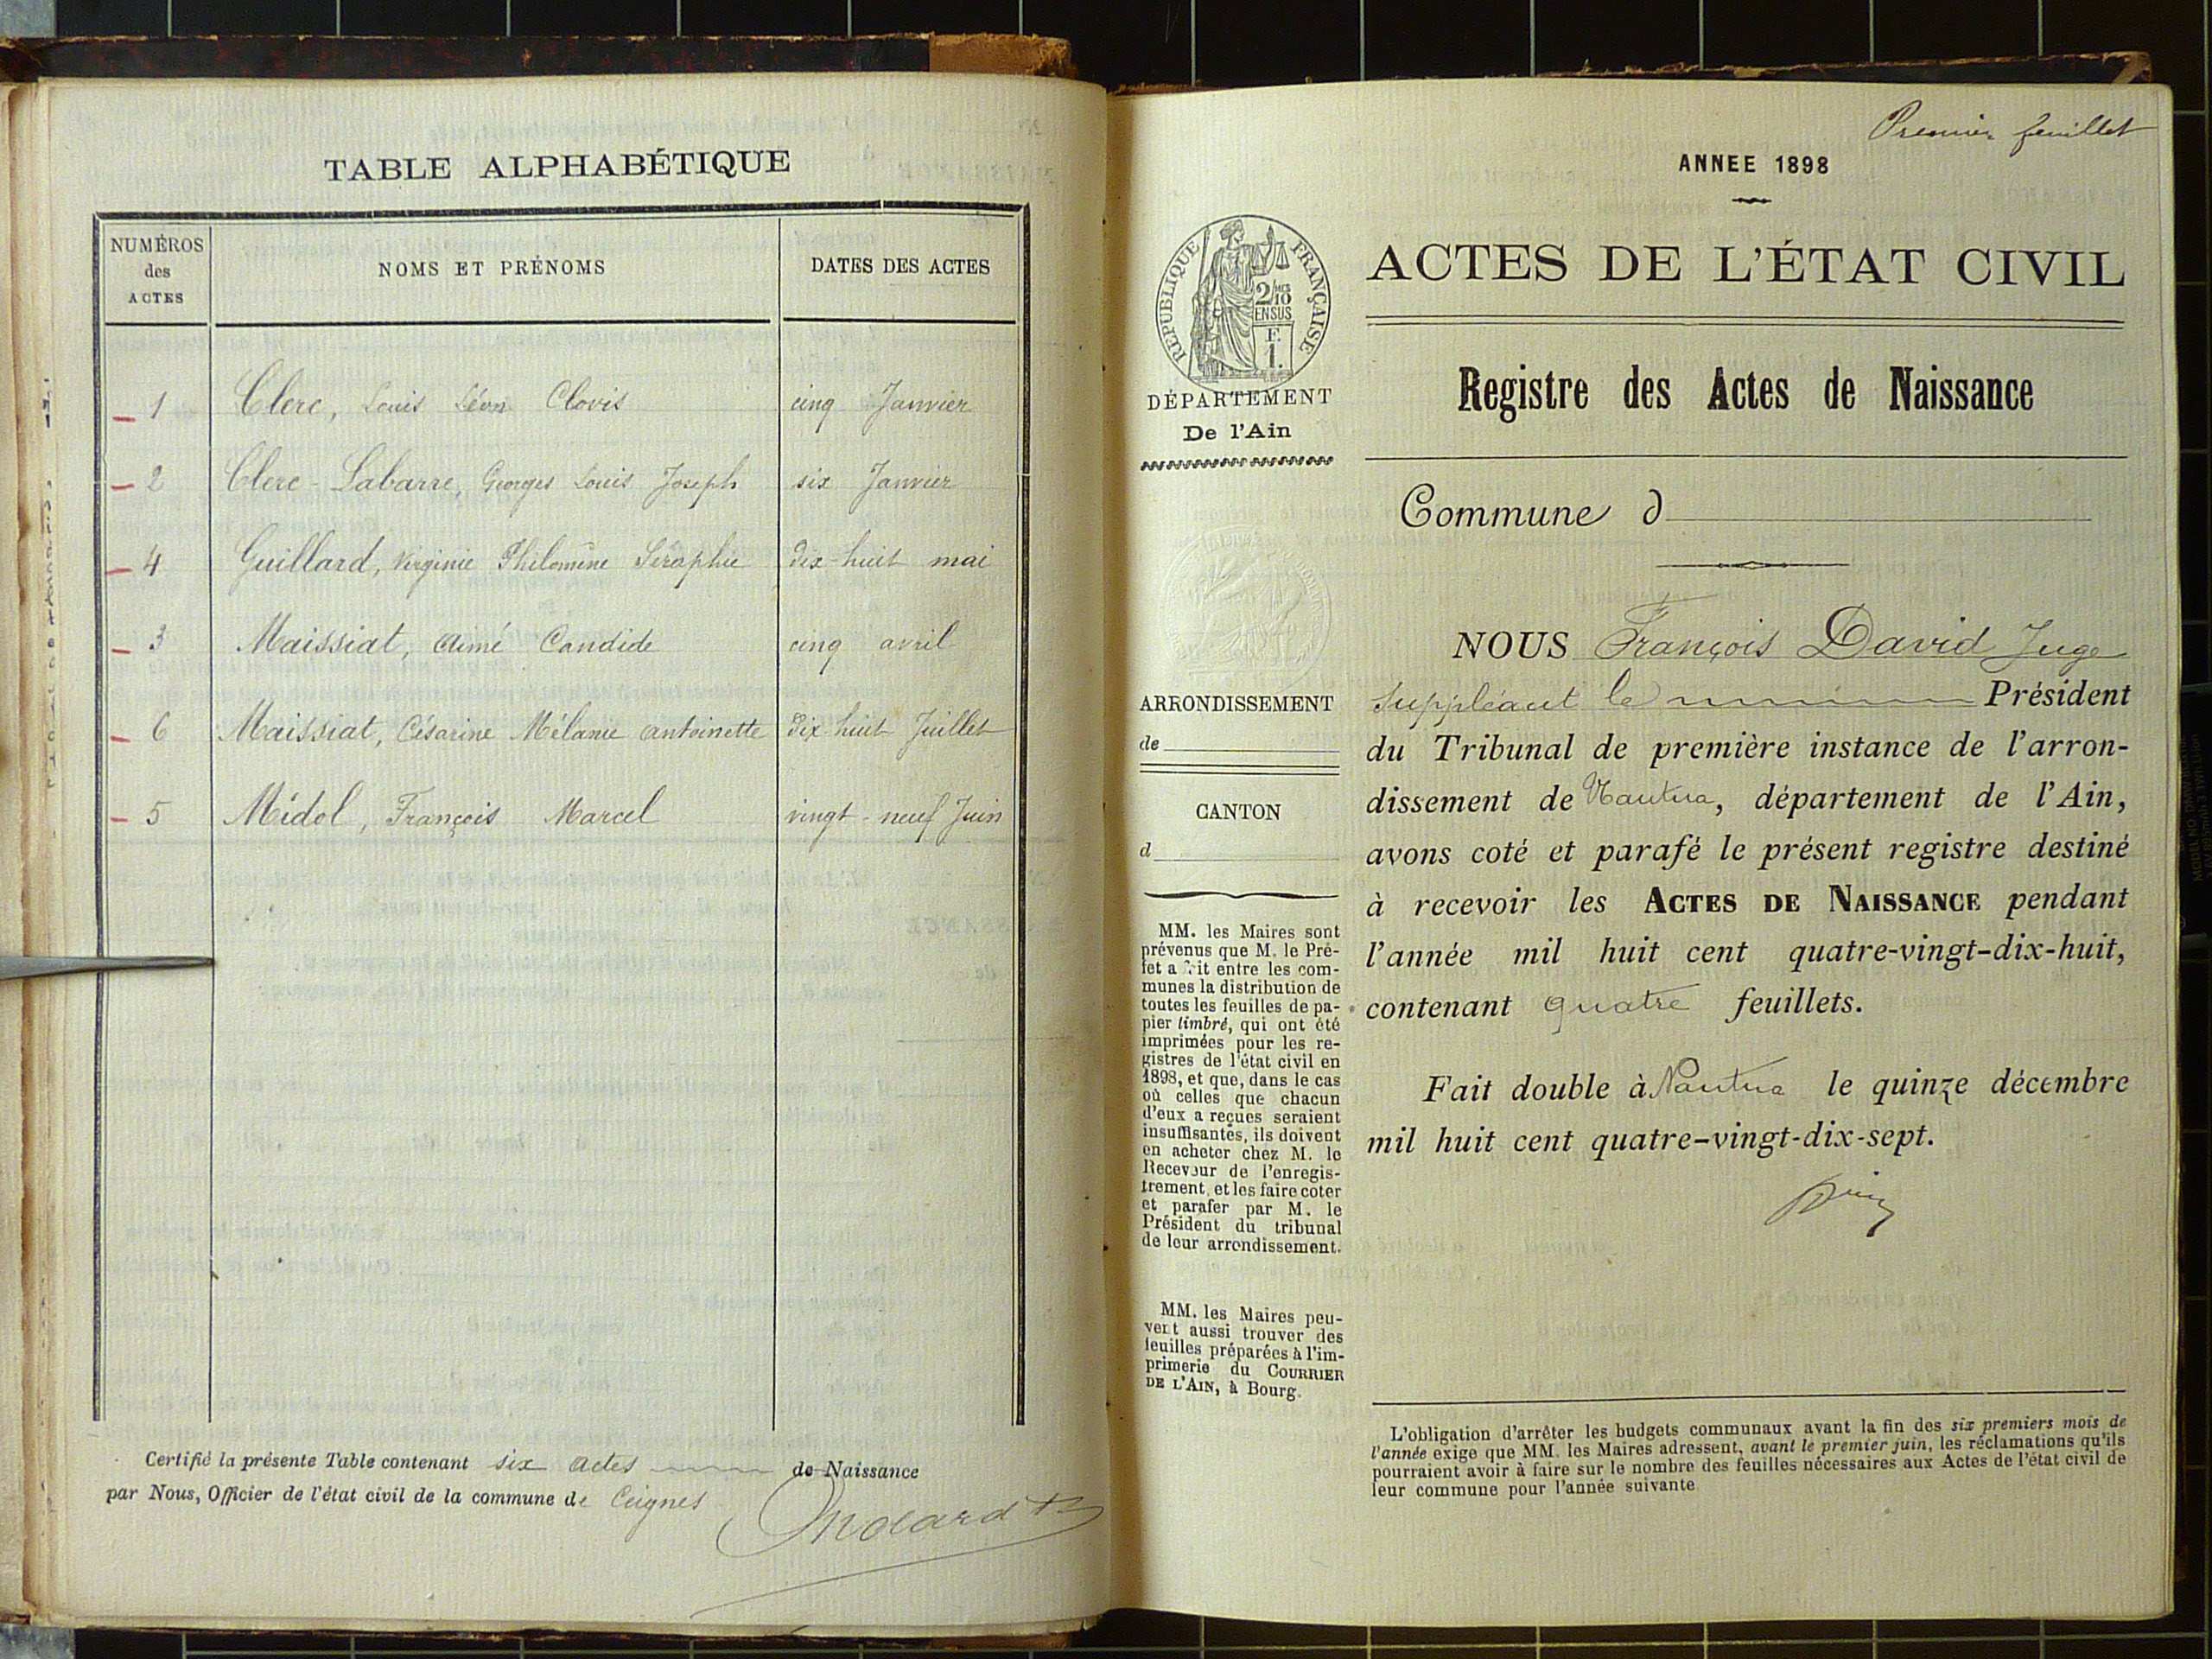 TABLE ALPHABÉTIQUE
NUMÉROS
des
ACTES
NOMS ET PRÉNOMS
DATES DES ACTES
1 Clerc, Louis Léon Clovis cinq Janvier
2 Clerc-Labarre, Georges Louis Joseph six Janvier
4 Guillard, Virginie Philomène Séraphie dix-huit mai
3 Maissiat, Aimé Candide cinq avril
6 Maissiat, Césarine Mélanie Antoinette dix-huit Juillet
5 Midol, François Marcel vingt-neuf Juin
Certifié la présente Table contenant six actes de Naissance
par Nous, Officier de l'état civil de la commune de Ceignes
Premier feuillet
ANNEE 1898
REPUBLIQUE FRANÇAISE
2/10
EN SUS
F.
1.
DÉPARTEMENT
De l'Ain
ACTES DE L'ÉTAT CIVIL
Registre des Actes de Naissance
Commune d
ARRONDISSEMENT
de
CANTON
d
MM. les Maires sont
prévenus que M. le Pré-
fet a fait entre les com-
munes la distribution de
toutes les feuilles de pa-
pier timbré, qui ont été
imprimées pour les re-
gistres de l'état civil en
1898, et que, dans le cas
où celles que chacun
d'eux a reçues seraient
insuffisantes, ils doivent
en acheter chez M. le
Receveur de l'enregis-
trement, et les faire coter
et parafer par M. le
Président du tribunal
de leur arrondissement.
MM. les Maires peu-
vent aussi trouver des
feuilles préparées à l'im-
primerie du COURRIER
DE L'AIN, à Bourg.
NOUS François David Juge
suppléant le Président
du Tribunal de première instance de l'arron-
dissement de Nantua, département de l'Ain,
avons coté et parafé le présent registre destiné
à recevoir les ACTES DE NAISSANCE pendant
l'année mil huit cent quatre-vingt-dix-huit,
contenant quatre feuillets.
Fait double à Nantua le quinze décembre
mil huit cent quatre-vingt-dix-sept.
L'obligation d'arrêter les budgets communaux avant la fin des six premiers mois de
l'année exige que MM. les Maires adressent, avant le premier juin, les réclamations qu'ils
pourraient avoir à faire sur le nombre des feuilles nécessaires aux Actes de l'état civil de
leur commune pour l'année suivante